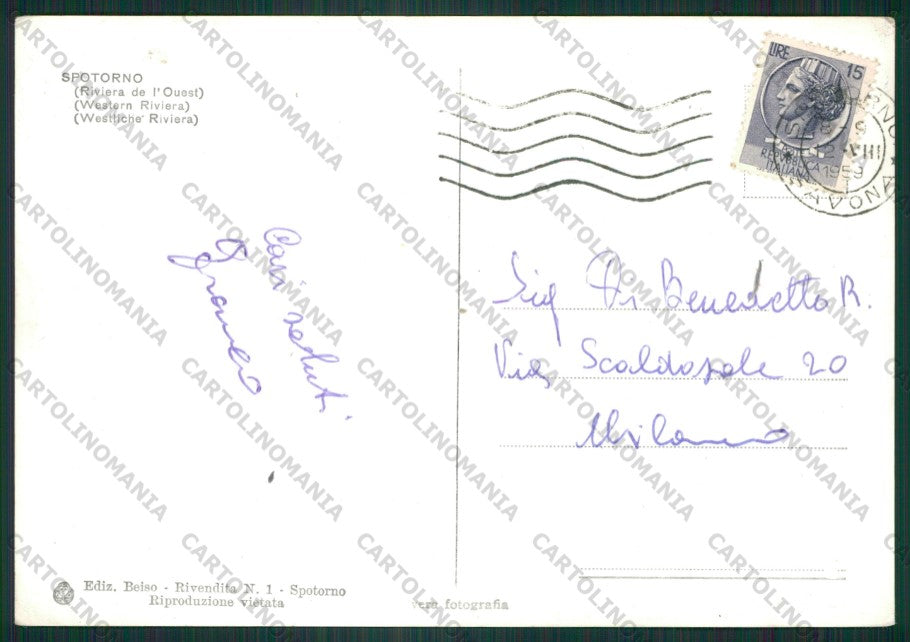 SPOTORNO
(Riviera de l'Ouest)
(Western Riviera)
(Westliche Riviera)
LIRE 15
REPVBBLICA
ITALIANA
12 VIII
1959
SAVONA
Cari saluti
Sig Di Benedetto R.
Via Scaldasole 20
Milano
Ediz. Beiso - Rivendita N. 1 - Spotorno
Riproduzione vietata
vera fotografia
CARTOLINOMANIA